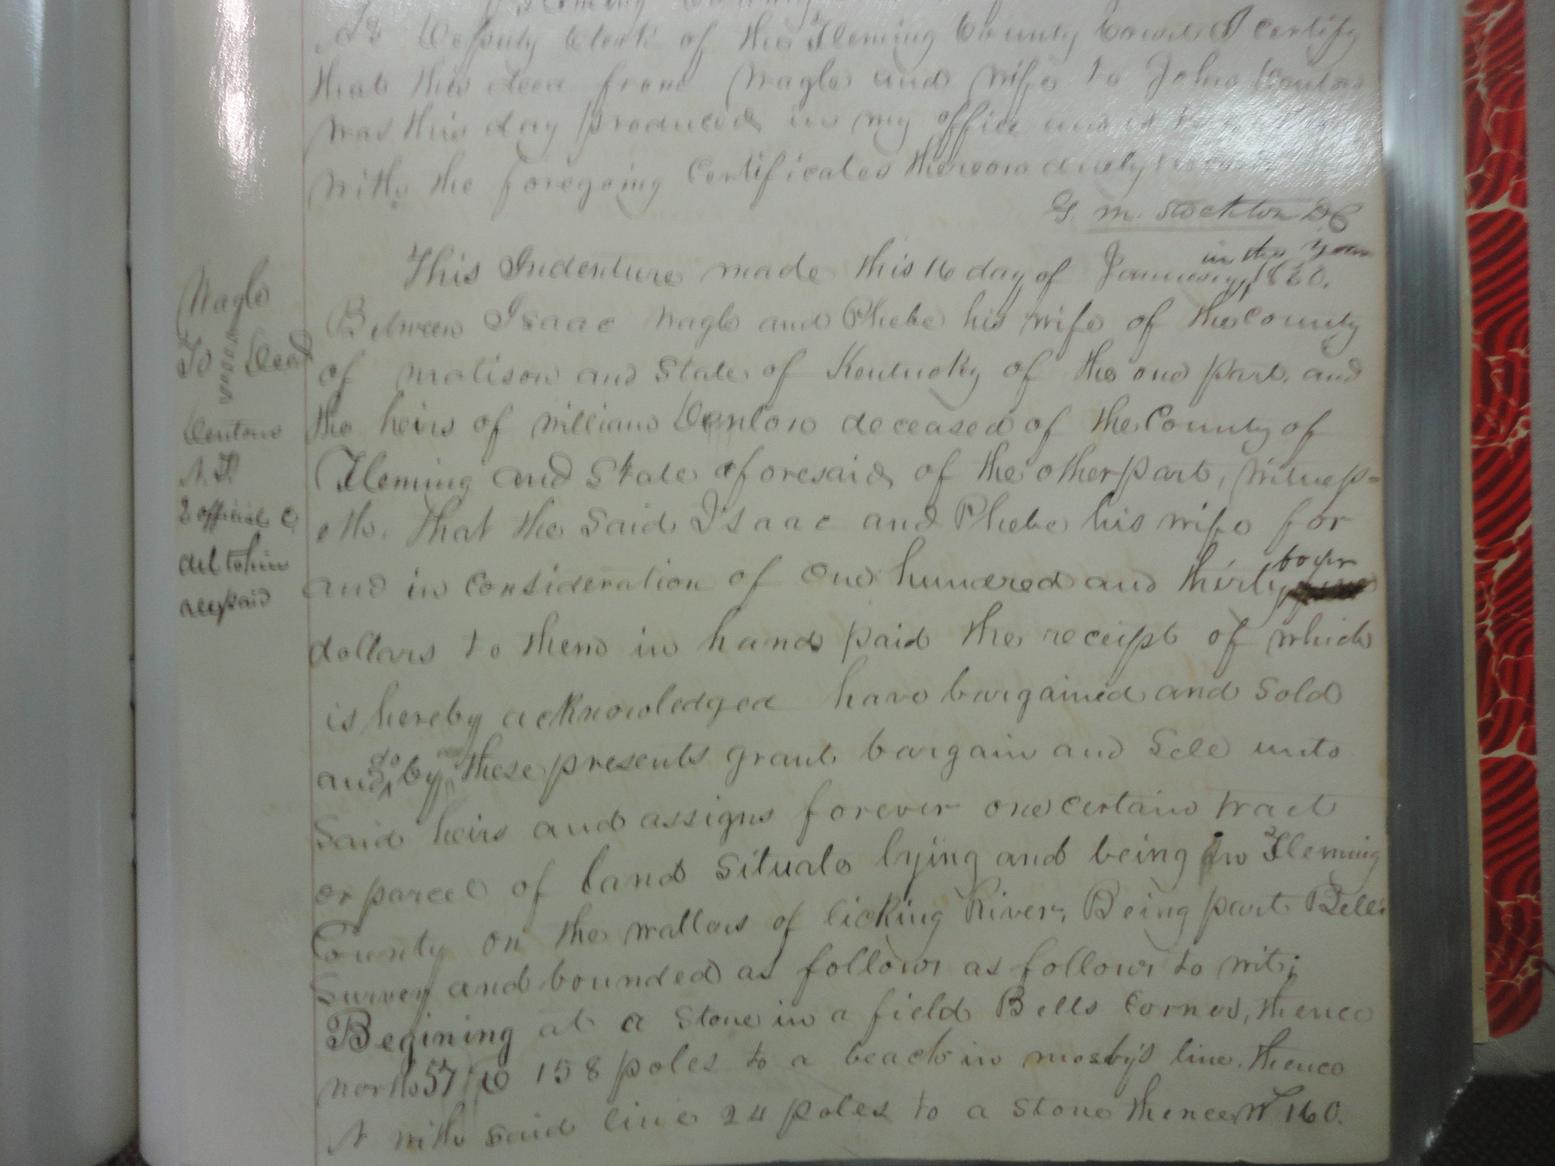 Fleming County
As Deputy Clerk of the Fleming County Court I certify
that this deed from Nagle and wife to John Denton
was this day produced in my office and
with the foregoing Certificates thereon duely
G. M. Stockton DC
in the year
This Indenture made this 16 day of January, 1860.
Between Isaac Nagle and Phebe his wife of the County
of Matison and State of Kentucky of the one part, and
the heirs of William Denton deceased of the County of
Fleming and State aforesaid of the other part, Witness-
eth. That the Said Isaac and Phebe his wife for
and in Consideration of One hundred and thirty four
dollars to them in hand paid the receipt of which
is hereby acknowledged have bargained and Sold
and do by these presents grant bargain and Sele unto
Said heirs and assigns forever one certain tract
or parcel of land Situate lying and being in Fleming
County on the wattors of licking River, Being part Bells
Survey and bounded as follows as follows to wit;
Begining at a Stone in a field Bells Corner, thence
north 57 158 poles to a beach in mosby's line, thence
N with said line 24 poles to a Stone thence W 160.
Nagle
To Deed
Dentons
2 official
del to him
all paid